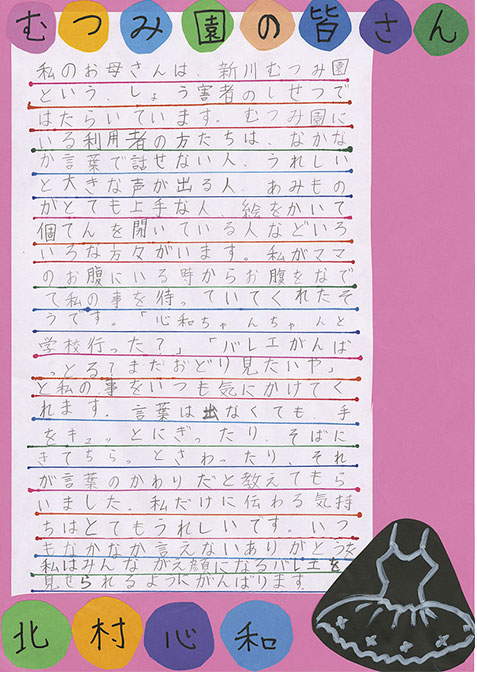 むつみ園の皆さん
私のお母さんは、新川むつみ園
という、しょう害者のしせつで
はたらいています。むつみ園に
いる利用者の方たちは、なかな
か言葉で話せない人、うれしい
と大きな声が出る人、あみもの
がとても上手な人、絵をかいて
個てんを開いている人などいろ
いろな方々がいます。私がママ
のお腹にいる時からお腹をなで
て私の事を待っていてくれたそ
うです。「心和ちゃんちゃんと
学校行った？」「バレエがんば
っとる？まだおどり見たいや」
と私の事をいつも気にかけてく
れます。言葉は出なくても、手
をキュッとにぎったり、そばに
きてちらっとさわったり、それ
が言葉のかわりだと教えてもら
いました。私だけに伝わる気持
ちはとてもうれしいです。いつ
もなかなか言えないありがとうを
私はみんながえ顔になるバレエを
見せられるようにがんばります。
北村心和